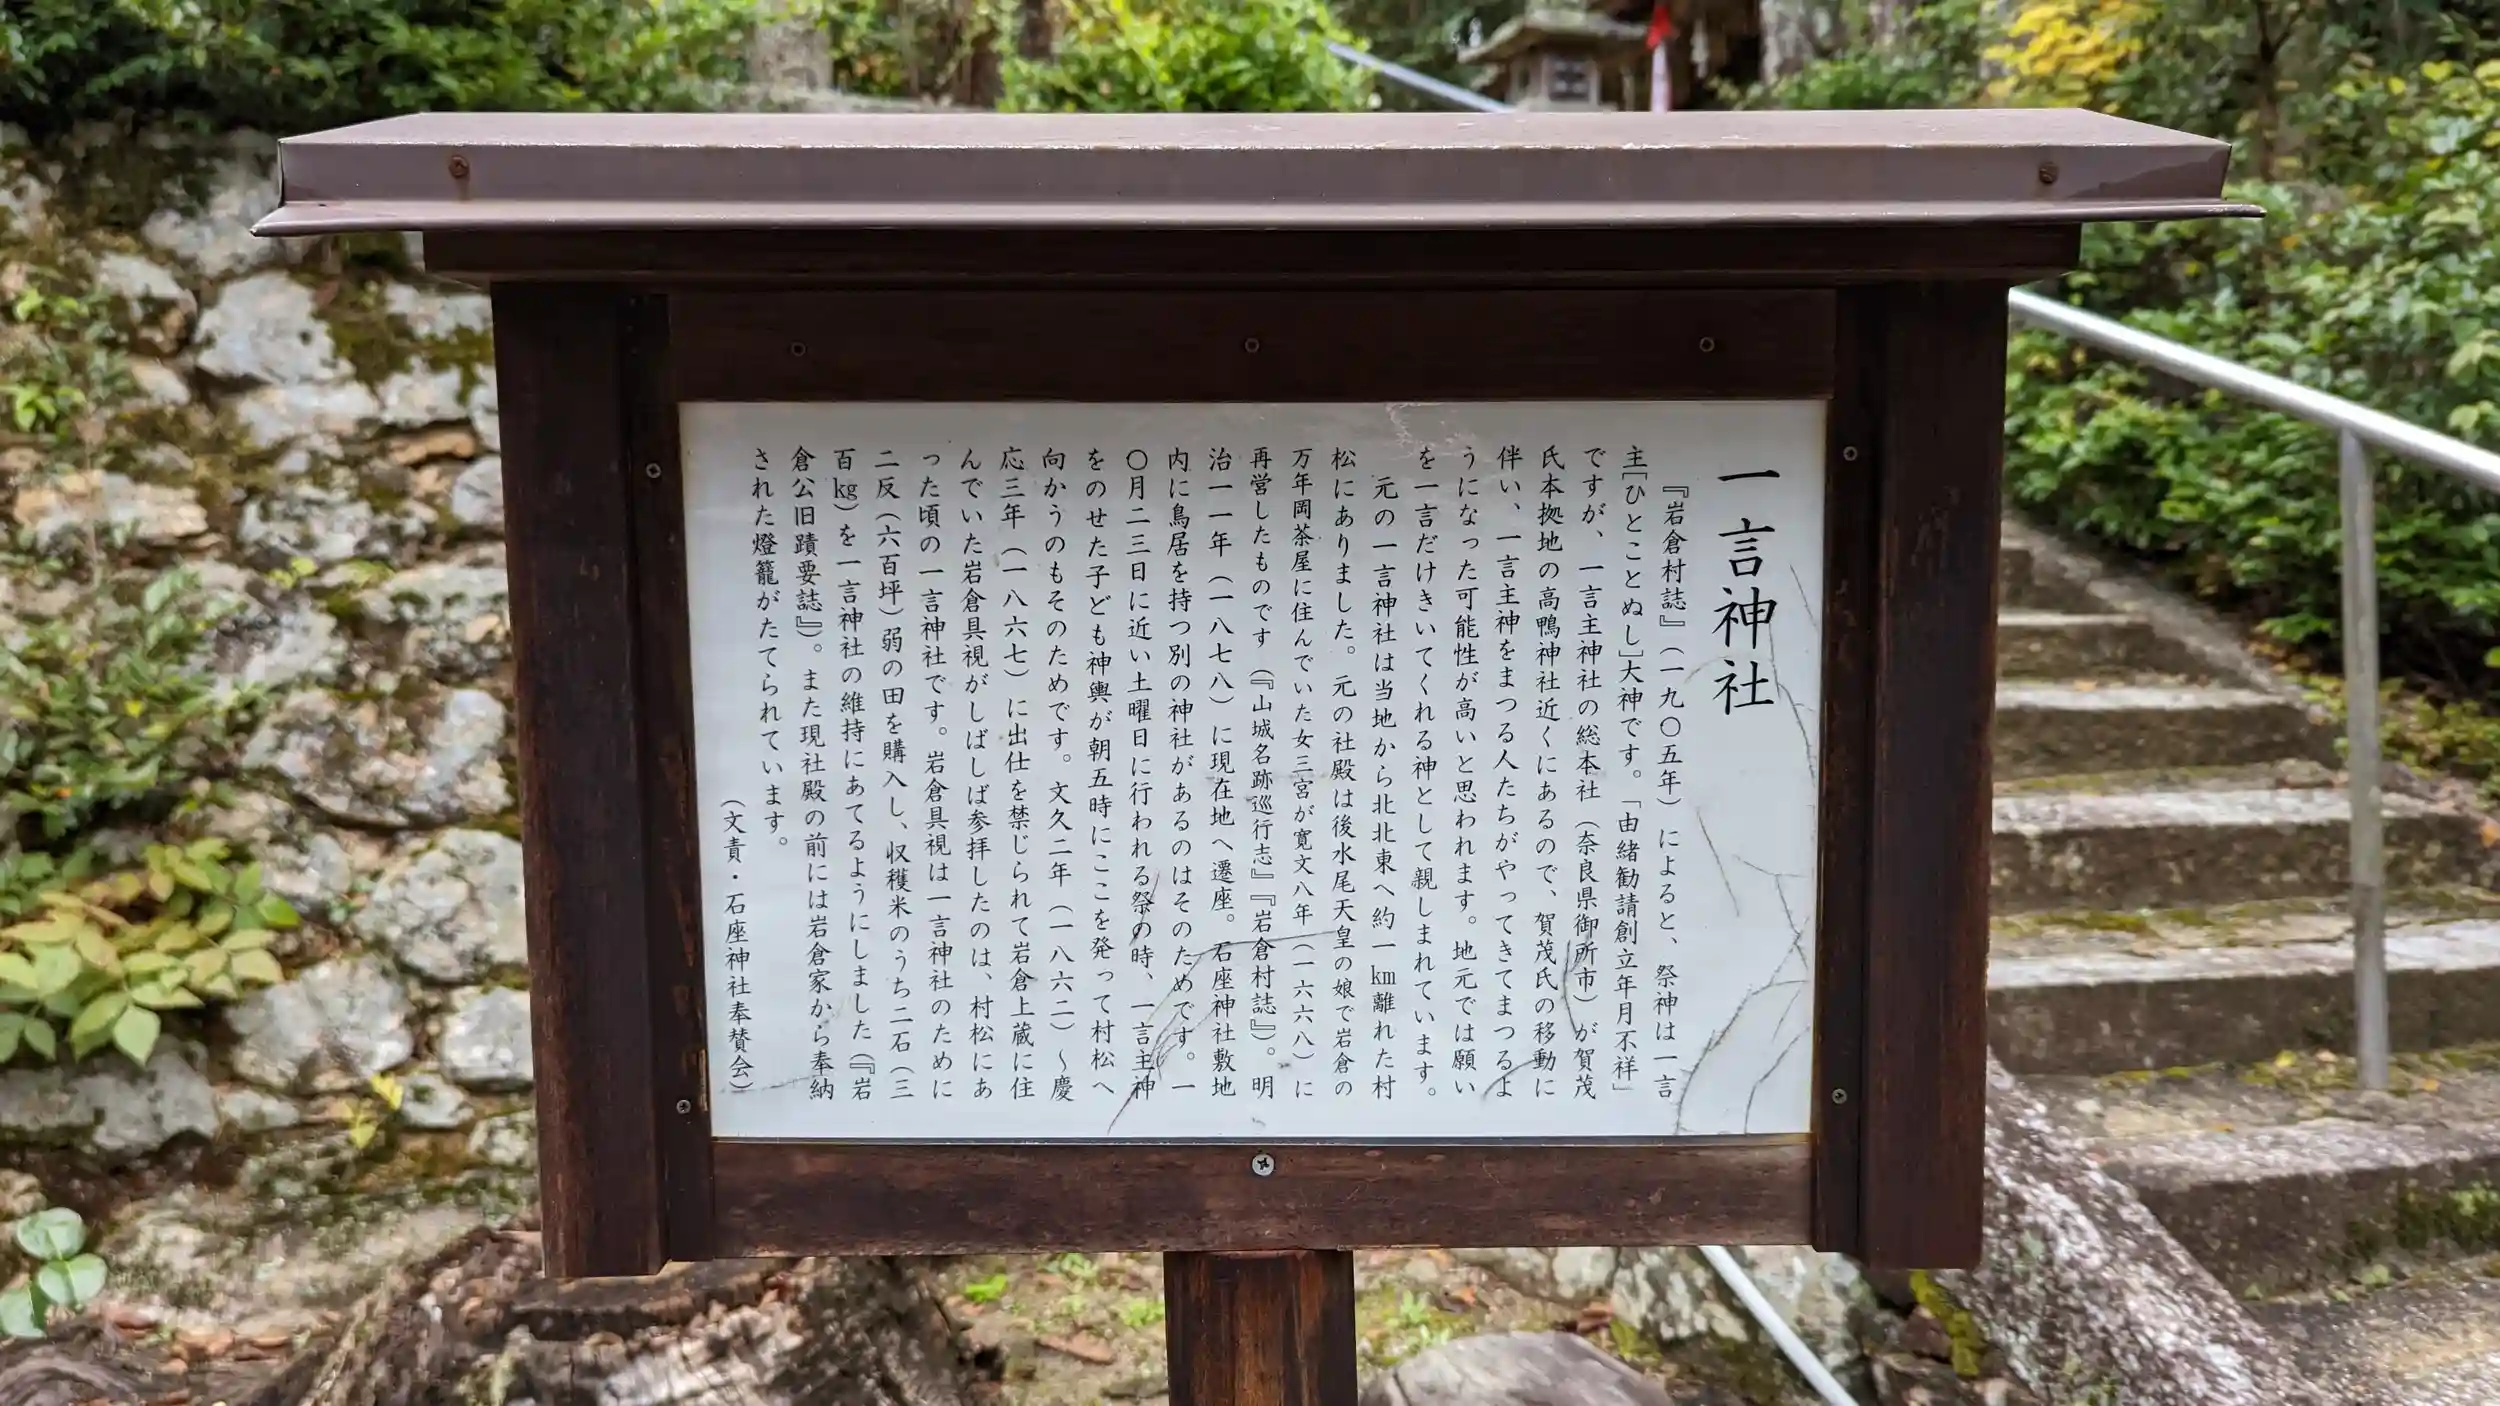 一言神社
『岩倉村誌』（一九〇五年）によると、祭神は一言
主［ひとことぬし］大神です。「由緒勧請創立年月不祥」
ですが、一言主神社の総本社（奈良県御所市）が賀茂
氏本拠地の高鴨神社近くにあるので、賀茂氏の移動に
伴い、一言主神をまつる人たちがやってきてまつるよ
うになった可能性が高いと思われます。地元では願い
を一言だけきいてくれる神として親しまれています。
元の一言神社は当地から北北東へ約一㎞離れた村
松にありました。元の社殿は後水尾天皇の娘で岩倉の
万年岡茶屋に住んでいた女三宮が寛文八年（一六六八）に
再営したものです（『山城名跡巡行志』『岩倉村誌』）。明
治一一年（一八七八）に現在地へ遷座。石座神社敷地
内に鳥居を持つ別の神社があるのはそのためです。一
〇月二三日に近い土曜日に行われる祭の時、一言主神
をのせた子ども神輿が朝五時にここを発って村松へ
向かうのもそのためです。文久二年（一八六二）～慶
応三年（一八六七）に出仕を禁じられて岩倉上蔵に住
んでいた岩倉具視がしばしば参拝したのは、村松にあ
った頃の一言神社です。岩倉具視は一言神社のために
二反（六百坪）弱の田を購入し、収穫米のうち二石（三
百㎏）を一言神社の維持にあてるようにしました（『岩
倉公旧蹟要誌』）。また現社殿の前には岩倉家から奉納
された燈籠がたてられています。
（文責・石座神社奉賛会）